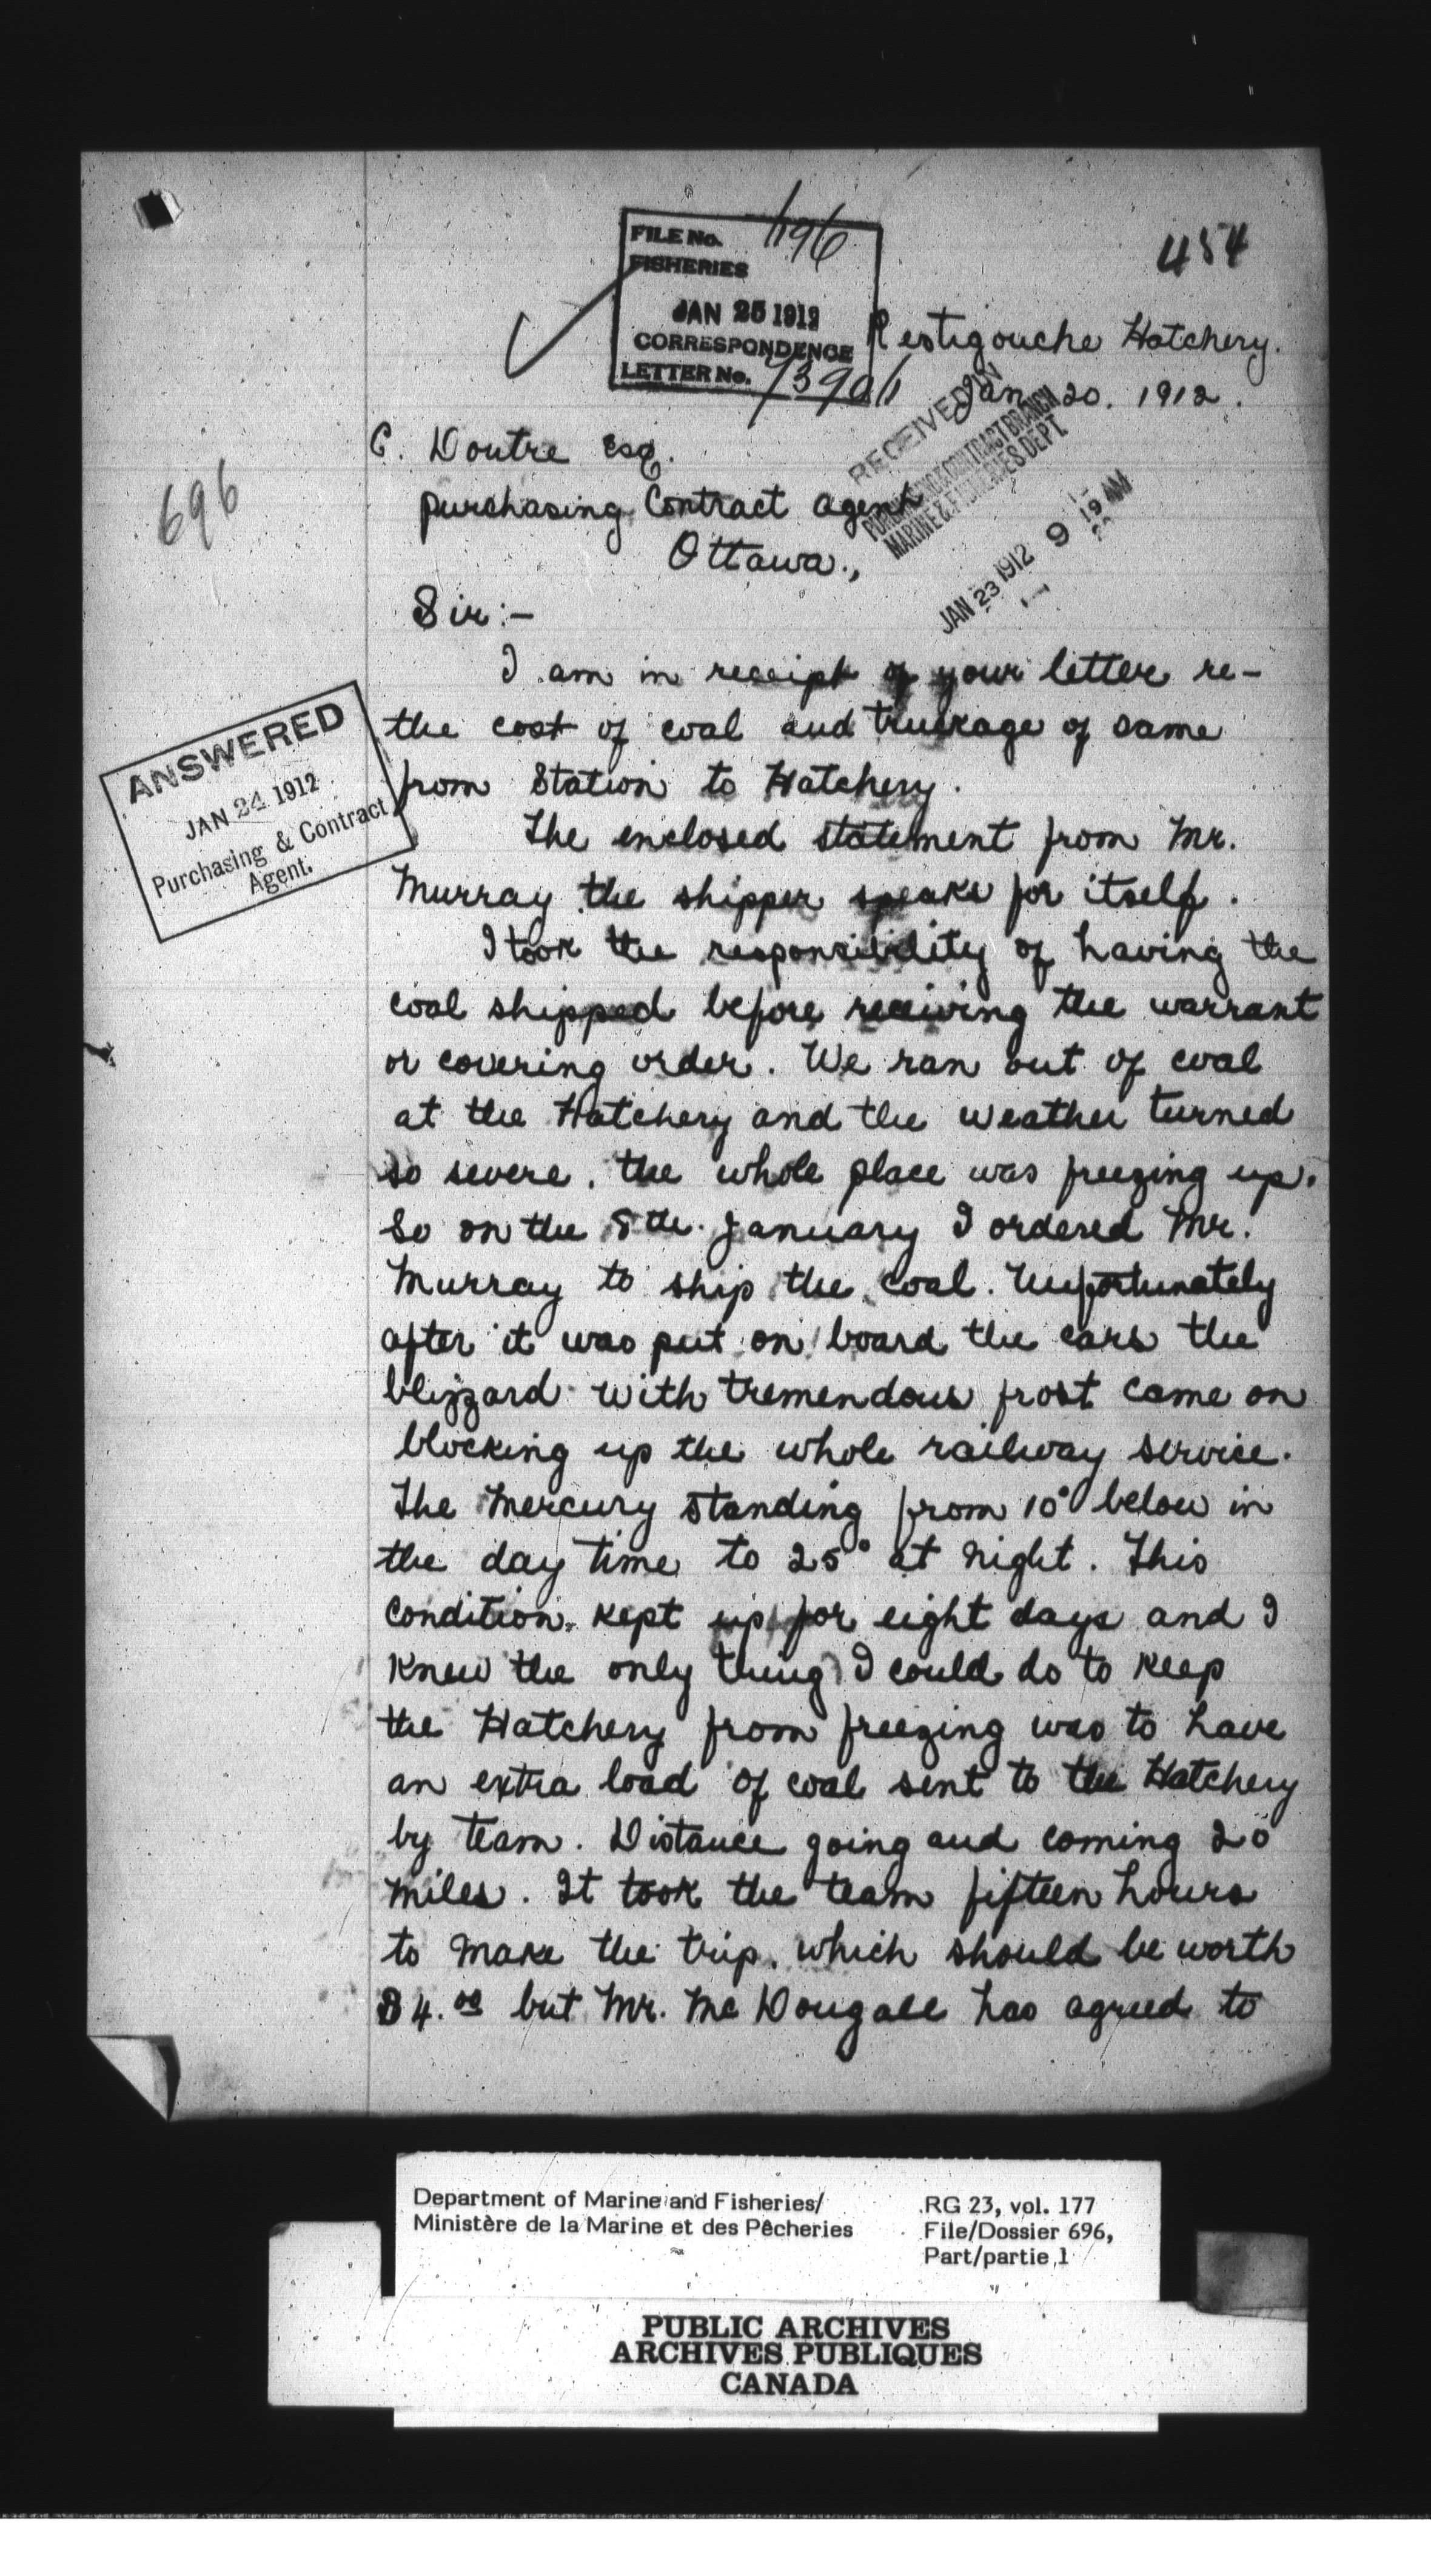 454
FILE No. 696
FISHERIES
JAN 25 1912
CORRESPONDENCE
LETTER No. 73901
Restigouche Hatchery.
Jan 20. 1912.
RECEIVED IN
PURCHASING & CONTRACT BRANCH
MARINE & FISHERIES DEPT.
JAN 23 1912 9 19 AM
696
C. Doutre Esq.
purchasing Contract agent
Ottawa.,
Sir:-
I am in receipt of your letter re-
the cost of coal and truckage of same
from Station to Hatchery.
The enclosed statement from Mr.
Murray the shipper speaks for itself.
ANSWERED
JAN 24 1912
Purchasing & Contract
Agent.
I took the responsibility of having the
coal shipped before receiving the warrant
or covering order. We ran out of coal
at the Hatchery and the weather turned
so severe. the whole place was freezing up.
So on the 8th. January I ordered Mr.
Murray to ship the coal. Unfortunately
after it was put on board the cars the
blizzard with tremendous frost came on
blocking up the whole railway service.
The Mercury standing from 10° below in
the day time to 25° at night. This
condition kept up for eight days and I
knew the only thing I could do to keep
the Hatchery from freezing was to have
an extra load of coal sent to the Hatchery
by team. Distance going and coming 20
miles. It took the team fifteen hours
to make the trip. which should be worth
$4.00 but Mr. McDougall has agreed to
Department of Marine and Fisheries/
Ministère de la Marine et des Pêcheries
RG 23, vol. 177
File/Dossier 696,
Part/partie 1
PUBLIC ARCHIVES
ARCHIVES PUBLIQUES
CANADA